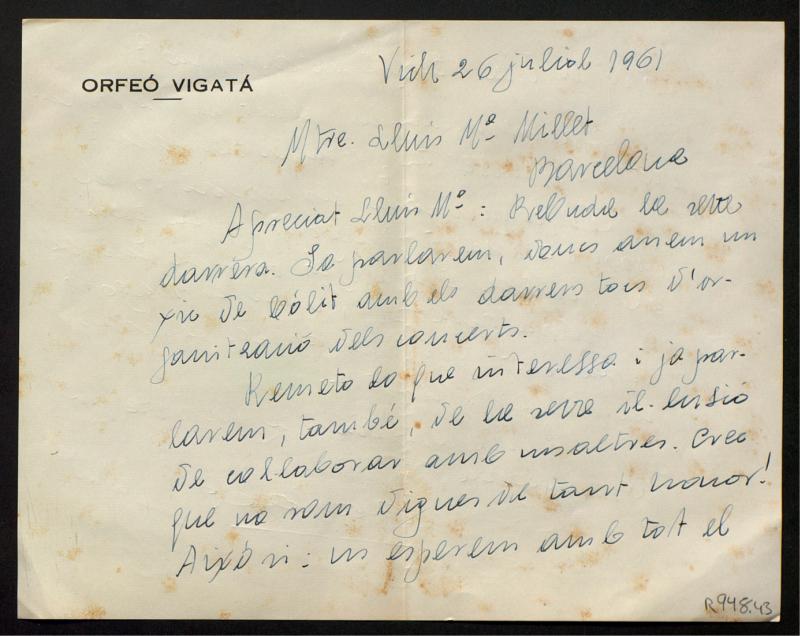 ORFEÓ VIGATÁ
Vich 26 juliol 1961
Mtre. Lluis Mª Millet
Barcelona
Apreciat Lluis Mª: Rebuda la seva
darrera. Ja parlarem, doncs anem un
xic de bòlit amb els darrers tocs d'or-
ganització dels concerts.
Remeto lo que interessa i ja par-
larem, també, de la seva il-lusió
de collaborar amb nosaltres. Crec
que no som dignes de tant honor!
Aixó si: us esperem amb tot el
R948.43